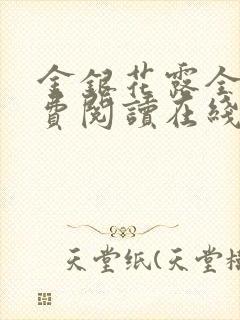 金銀花露全
費閱讀在綫
天堂紙(天堂橋